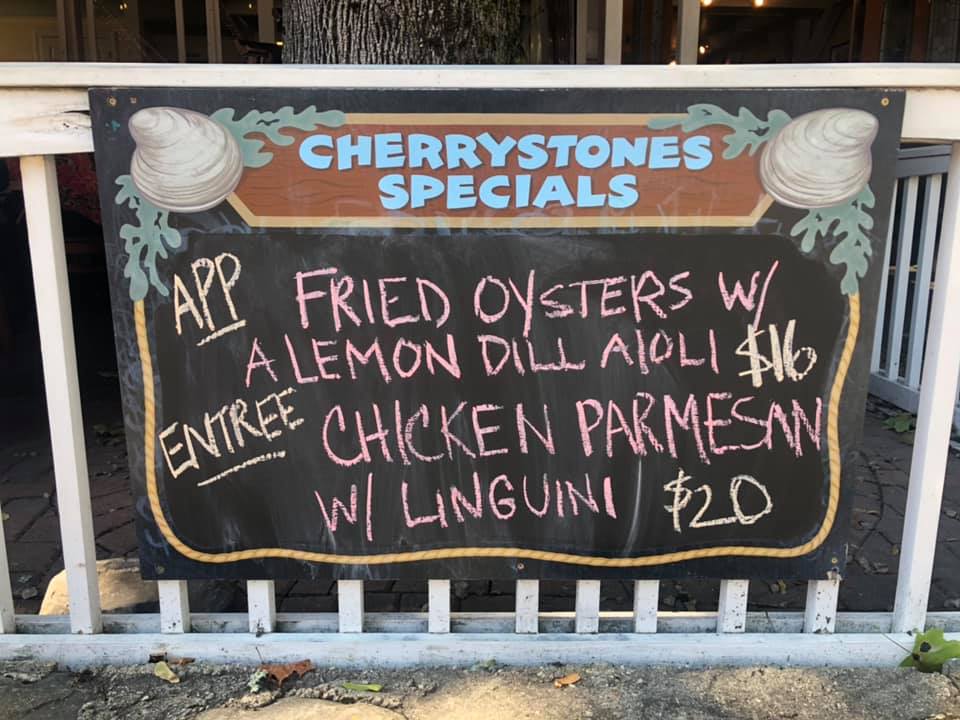 CHERRYSTONES
SPECIALS
APP FRIED OYSTERS W/
A LEMON DILL AIOLI $16
ENTREE CHICKEN PARMESAN
W/ LINGUINI $20